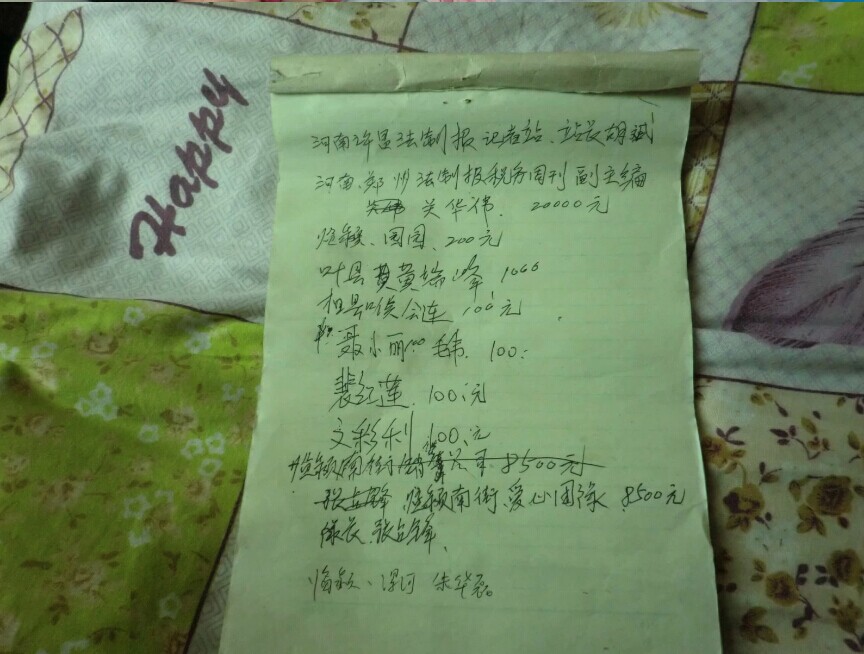 Happy
河南许昌法制报记者站、站长胡斌
河南、郑州法制报税务周刊副主编
关华伟. 20000元
临颍、园园、200元
叶县黄瑞峰 1000
侯会连 100元
聂小丽100 毛韦. 100:
裴红莲. 100:元
文彩利 100:元
临颍南街 8500元
张占锋 临颍南街、爱心团队 8500元
队长、张占锋.
临颍、漯河 朱华磊